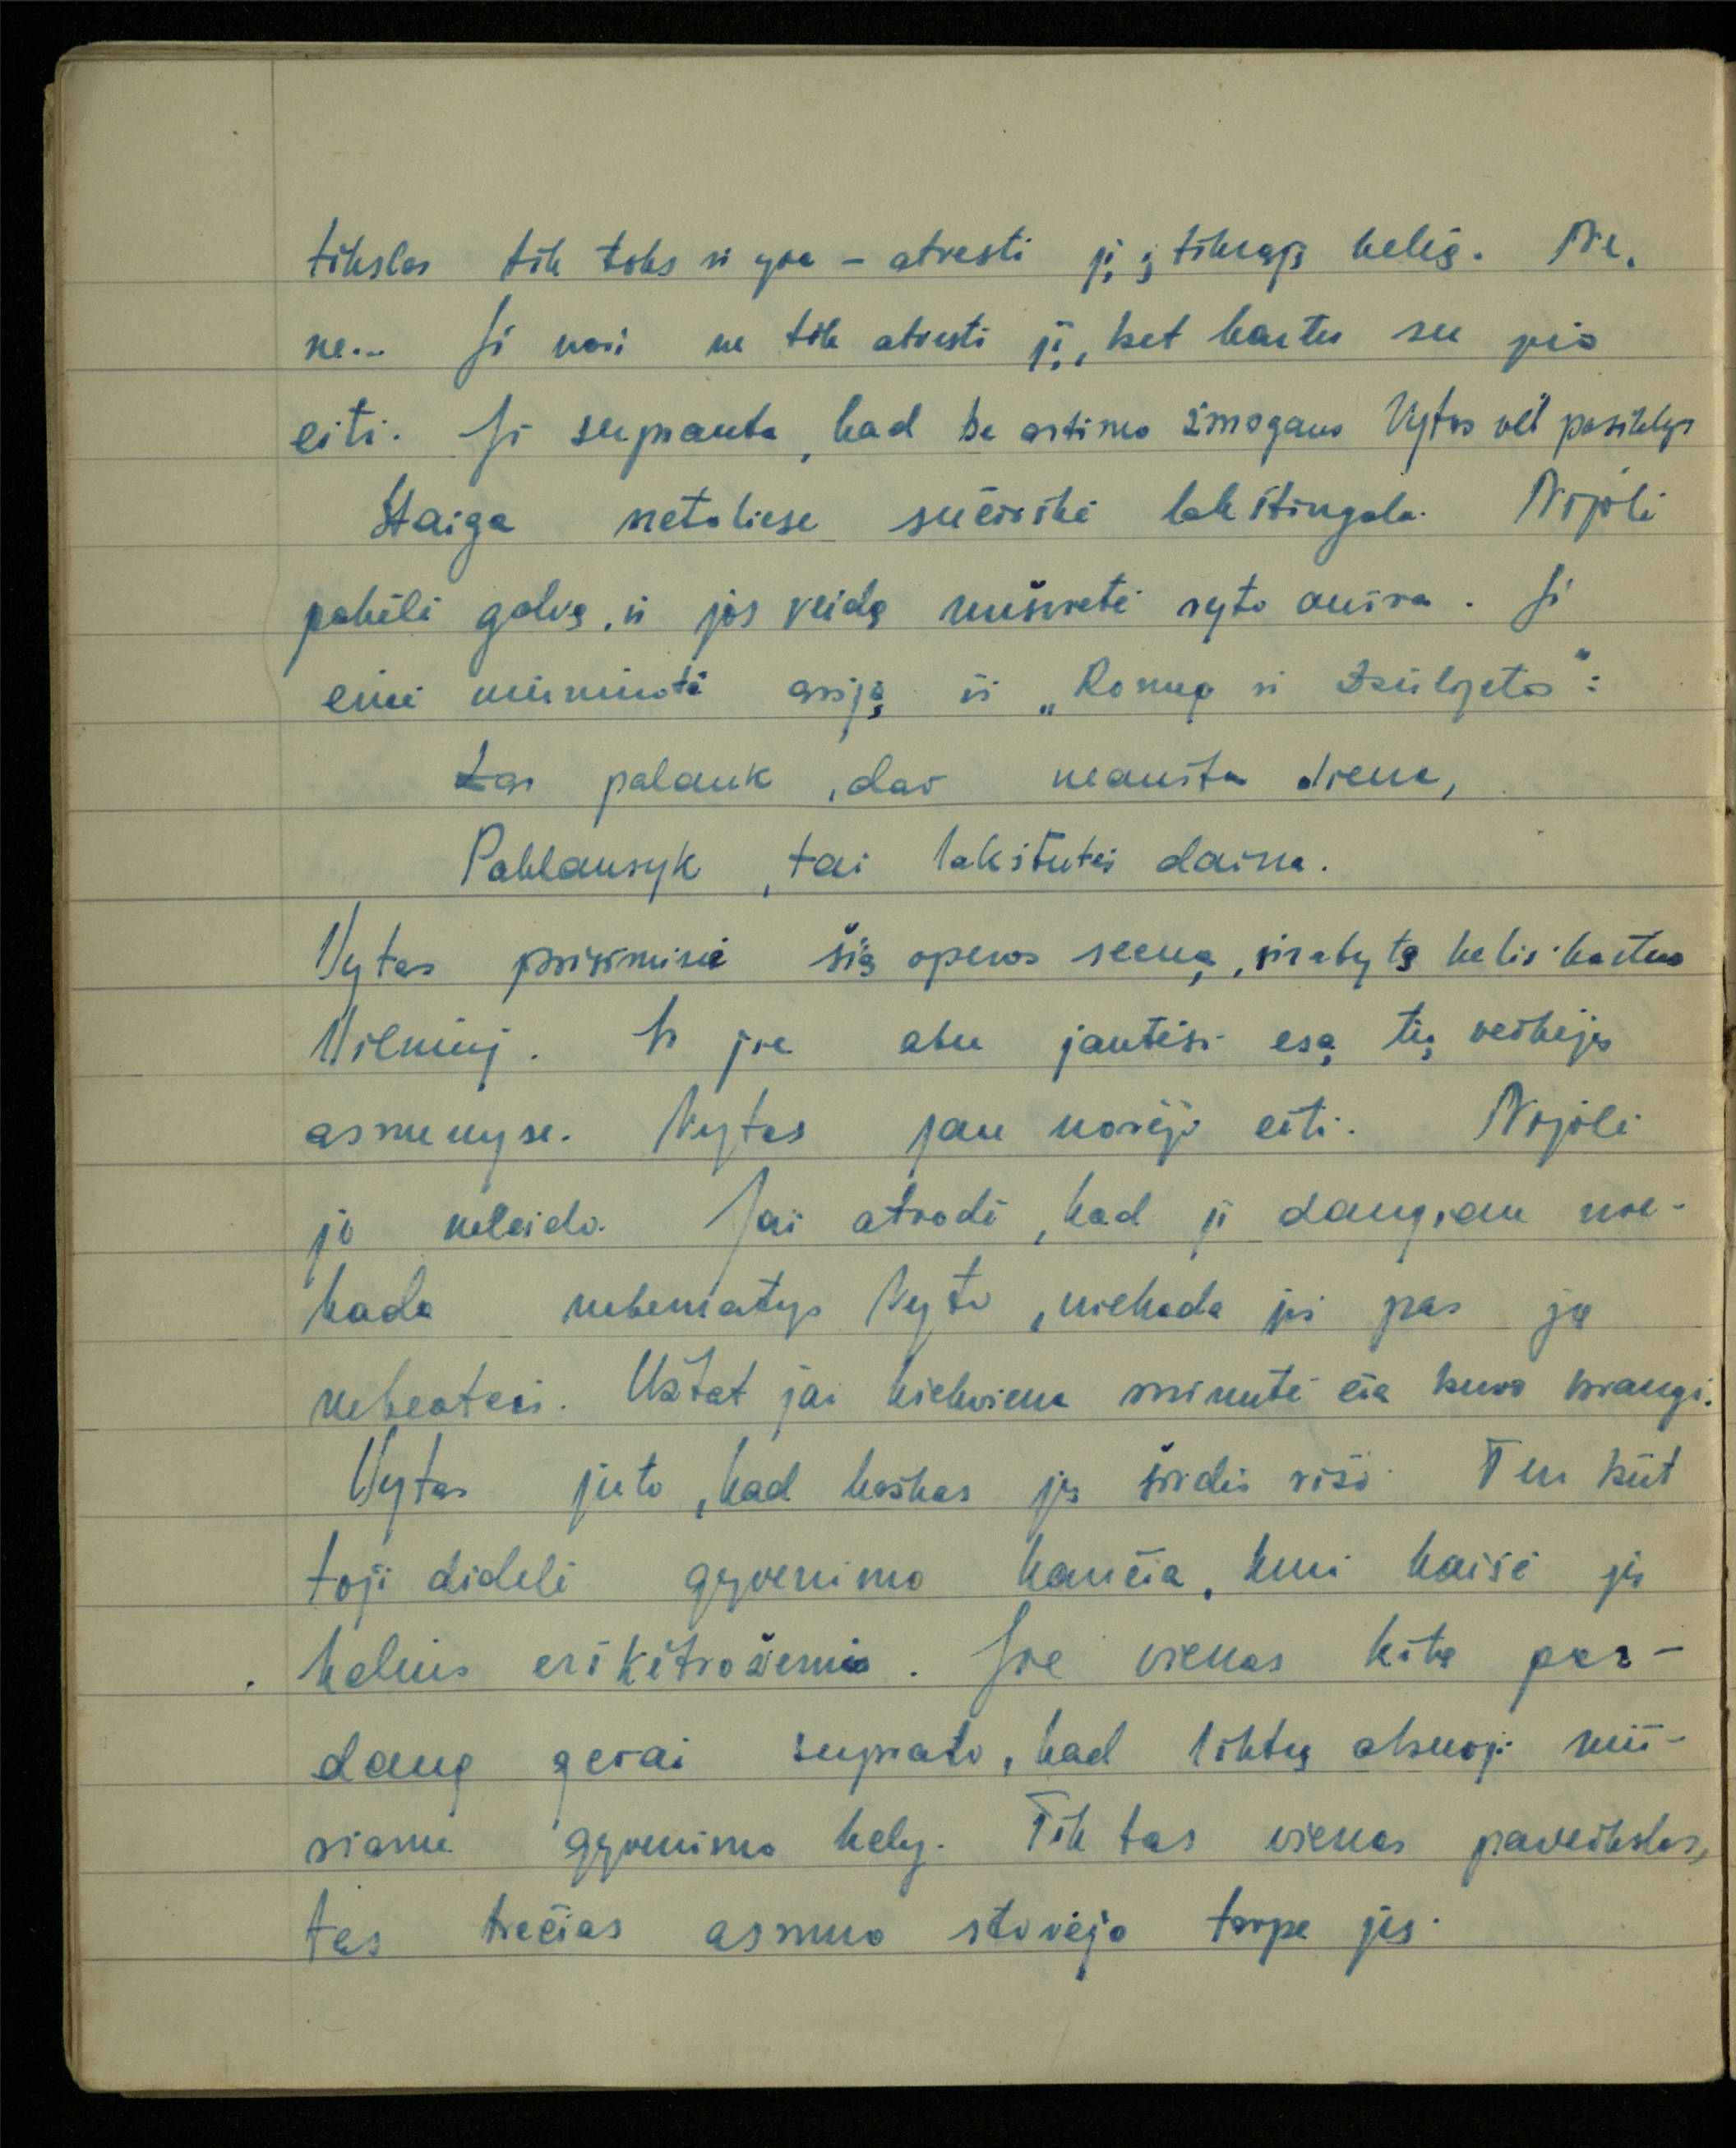 tikslas tik toks ir yra – atvesti jį į tikrąjį kelią. Ne,
ne... Ji nori ne tik atvesti jį, bet kartu su juo
eiti. Ji supranta, kad be artimo žmogaus Vytas vėl pasiklys
Staiga netoliese sučirškė lakštingala. Nijolė
pakėlė galvą, ir jos veidą nušvietė ryto aušra. Ji
ėmė murmuoti ariją iš „Romeo ir Džiuljeta":
Dar palauk, dar neaušta diena,
Paklausyk, tai lakštutės daina.
Vytas prisiminė šią operos sceną, matytą kelis kartus
Vilniuj. Ir jie abu jautėsi esą tų veikėjų
asmenyse. Vytas jau norėjo eiti. Nijolė
jo neleido. Jai atrodė, kad ji daugiau nie-
kada nebematys Vyto, niekada jis pas ją
nebeateis. Užtat jai kiekviena minutė čia buvo brangi.
Vytas juto, kad kažkas jų širdis rišo. Ten būt
toji didelė gyvenimo kančia, kuri kaišė jų
kelius erškėtrožėmis. Jie vienas kitą per-
daug gerai suprato, kad liktų abuoji nuo-
siame gyvenimo kely. Tik tas vienas paveikslas,
tas trečias asmuo stovėjo tarpe jų.